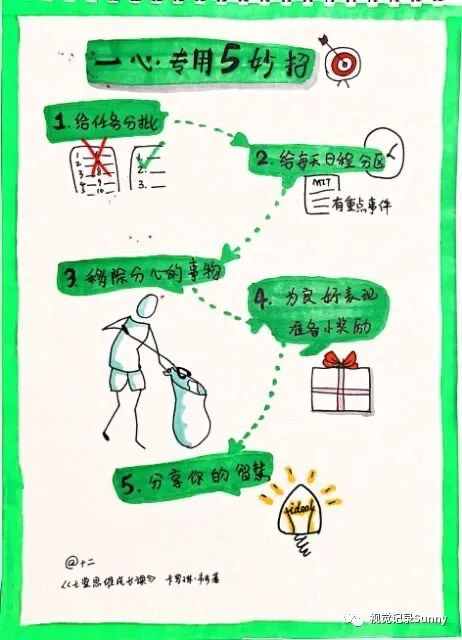 一心专用5妙招
1. 给任务分批
1.
2.
3.
8
4 9
5 10
1.
2.
3.
2. 给每天日程分区
MIT
有重点事件
3. 移除分心的事物
4. 为良好表现
准备小奖励
5. 分享你的智慧
idea
@十二
《七堂思维成长课》 卡罗琳·韦布著
视觉记录Sunny